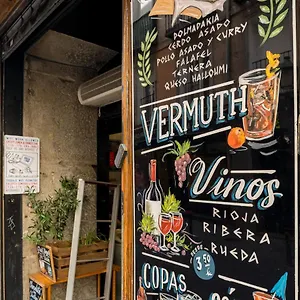 DOLMAPAKIA
CERDO ASADO
POLLO ASADO Y CURRY
FALAFEL
TERNERA
QUESO HALLOUMI
VERMUTH
Vinos
RIOJA
RIBERA
RUEDA
3'50
COPAS